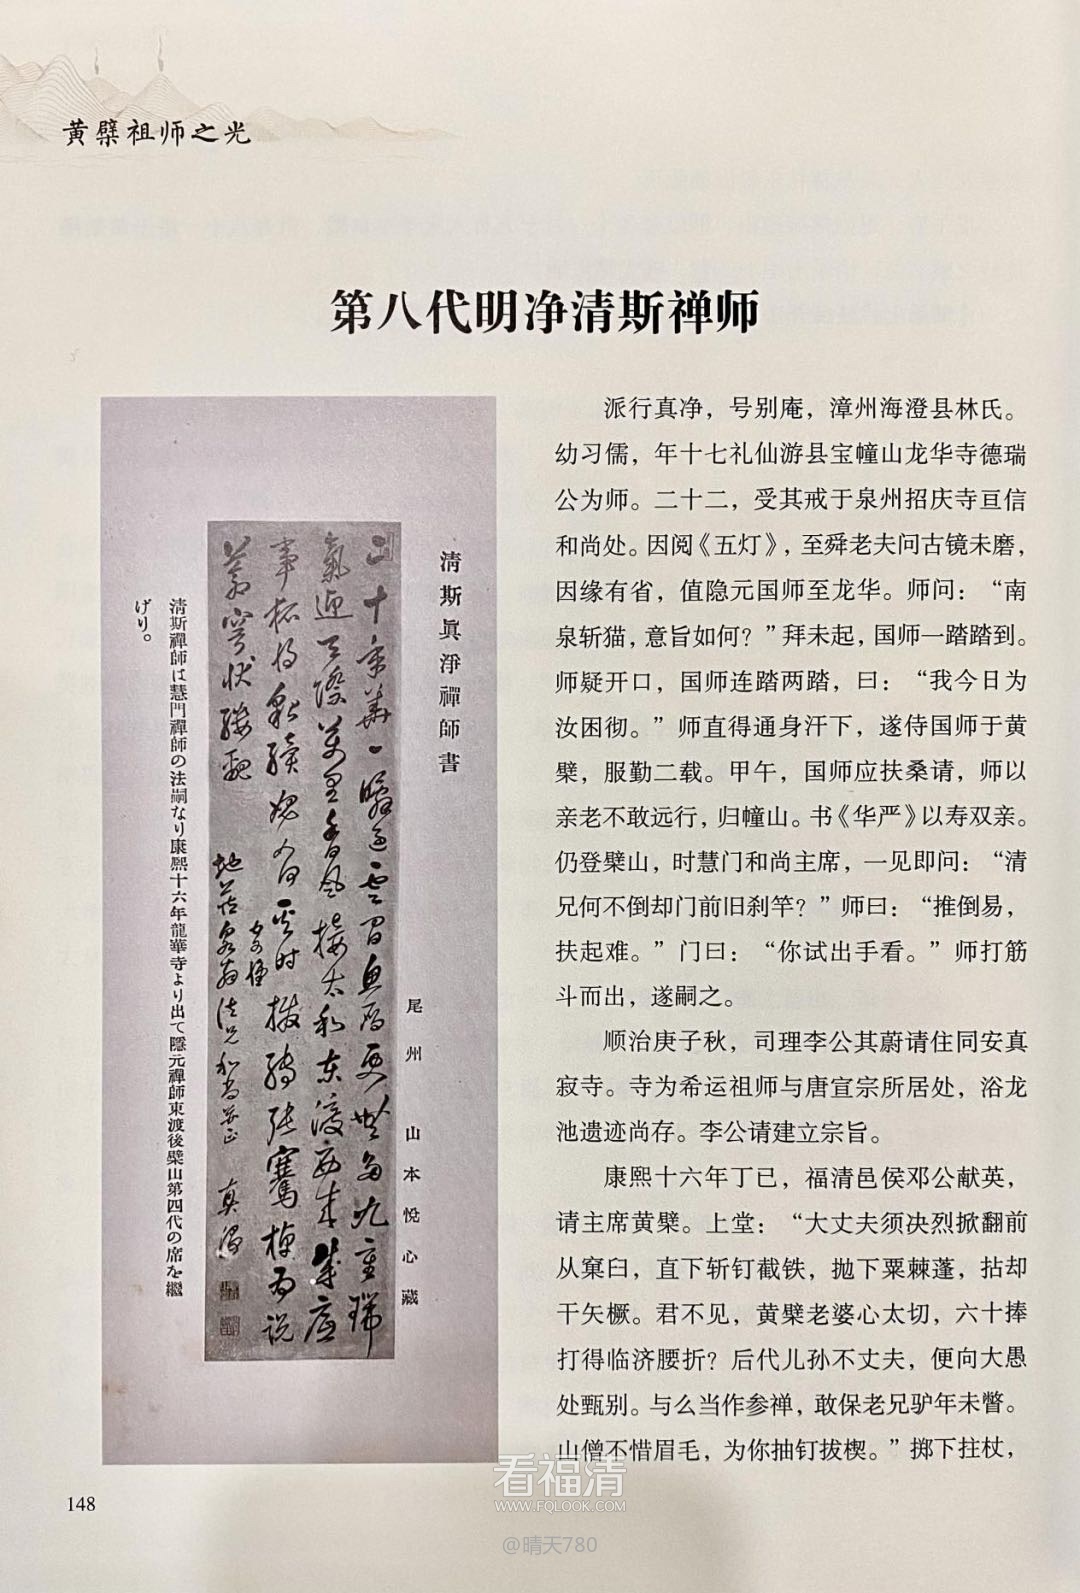 黄檗祖师之光
第八代明净清斯禅师
清斯眞淨禪師書
尾州 山本悦心藏
清斯禪師は慧門禪師の法嗣なり康熙十六年龍華寺より出て隱元禪師東渡後檗山第四代の席を繼
げり。
派行真净，号别庵，漳州海澄县林氏。
幼习儒，年十七礼仙游县宝幢山龙华寺德瑞
公为师。二十二，受其戒于泉州招庆寺亘信
和尚处。因阅《五灯》，至舜老夫问古镜未磨，
因缘有省，值隐元国师至龙华。师问：“南
泉斩猫，意旨如何？”拜未起，国师一踏踏到。
师疑开口，国师连踏两踏，曰：“我今日为
汝困彻。”师直得通身汗下，遂侍国师于黄
檗，服勤二载。甲午，国师应扶桑请，师以
亲老不敢远行，归幢山。书《华严》以寿双亲。
仍登檗山，时慧门和尚主席，一见即问：“清
兄何不倒却门前旧刹竿？”师曰：“推倒易，
扶起难。”门曰：“你试出手看。”师打筋
斗而出，遂嗣之。
顺治庚子秋，司理李公其蔚请住同安真
寂寺。寺为希运祖师与唐宣宗所居处，浴龙
池遗迹尚存。李公请建立宗旨。
康熙十六年丁巳，福清邑侯邓公献英，
请主席黄檗。上堂：“大丈夫须决烈掀翻前
从窠臼，直下斩钉截铁，抛下粟棘蓬，拈却
干矢橛。君不见，黄檗老婆心太切，六十捧
打得临济腰折？后代儿孙不丈夫，便向大愚
处甄别。与么当作参禅，敢保老兄驴年未瞥。
山僧不惜眉毛，为你抽钉拔楔。”掷下拄杖，
148
看福清
WWW.FQLOOK.COM
@晴天780